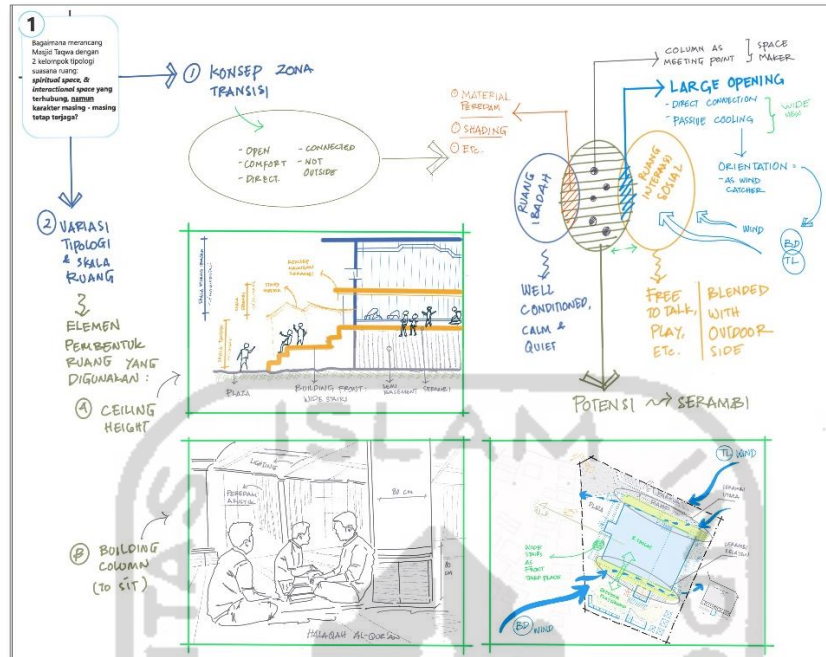 1
Bagaimana merancang
Masjid Taqwa dengan
2 kelompok tipologi
suasana ruang:
spiritual space, &
interactional space yang
terhubung, namun
karakter masing - masing
tetap terjaga?
1 KONSEP ZONA
TRANSISI
- OPEN
- COMFORT
- DIRECT
- CONNECTED
- NOT
OUTSIDE
MATERIAL
PEREDAM
SHADING
ETC.
COLUMN AS
MEETING POINT
SPACE
MAKER
LARGE OPENING
- DIRECT CONNECTION
- PASSIVE COOLING
WIDE
VIEW
ORIENTATION =
- AS WIND
CATCHER
WIND
BD
TL
RUANG
IBADAH
RUANG
INTERAKSI
SOSIAL
WELL
CONDITIONED,
CALM &
QUIET
FREE
TO TALK,
PLAY,
ETC.
BLENDED
WITH
OUTDOOR
SIDE
POTENSI SERAMBI
2 VARIASI
TIPOLOGI
& SKALA
RUANG
ELEMEN
PEMBENTUK
RUANG YANG
DIGUNAKAN:
A CEILING
HEIGHT
PLAZA
BUILDING FRONT:
WIDE STAIRS
SEMI
BASEMENT
SERAMBI
B BUILDING
COLUMN
(TO SIT)
LIGHTING
PEREDAM
AKUSTIK
80 CM
80
CM
HALAQAH AL-QUR'AN
TL WIND
SERAMBI
UTARA
PLAZA
SERAMBI
SELATAN
WIDE
STAIRS
AS
FRONT
BD WIND
ISLAM